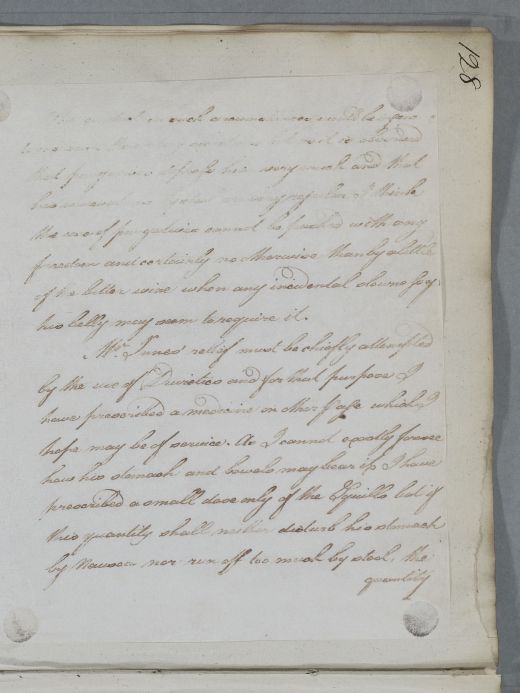 128
in such circumstances would be
observed
that purgatives depress him very much and that
his are very regular I think
the use of purgatives cannot be pushed with any
freedom and certainly no otherwise than by a little
of the bitter wine when any incidental slowness of
his belly may seem to require it.
Mr. Innes' relief must be chiefly attempted
by the use of Diuretics and for that purpose I
have prescribed a medicine on other page which I
hope may be of service. As I cannot exactly foresee
how his stomach and bowels may bear it I have
prescribed a small dose only of the Squills but if
this quantity shall neither disturb his stomach
by Nausea nor run off too much by stool, the
quantity